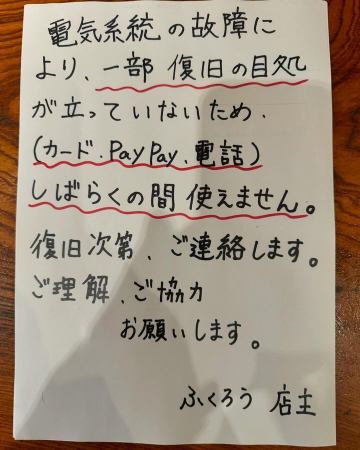 電気系統の故障に
より、一部 復旧の目処
が立っていないため、
(カード、PayPay、電話)
しばらくの間 使えません。
復旧次第、ご連絡します。
ご理解、ご協力
お願いします。
ふくろう 店主